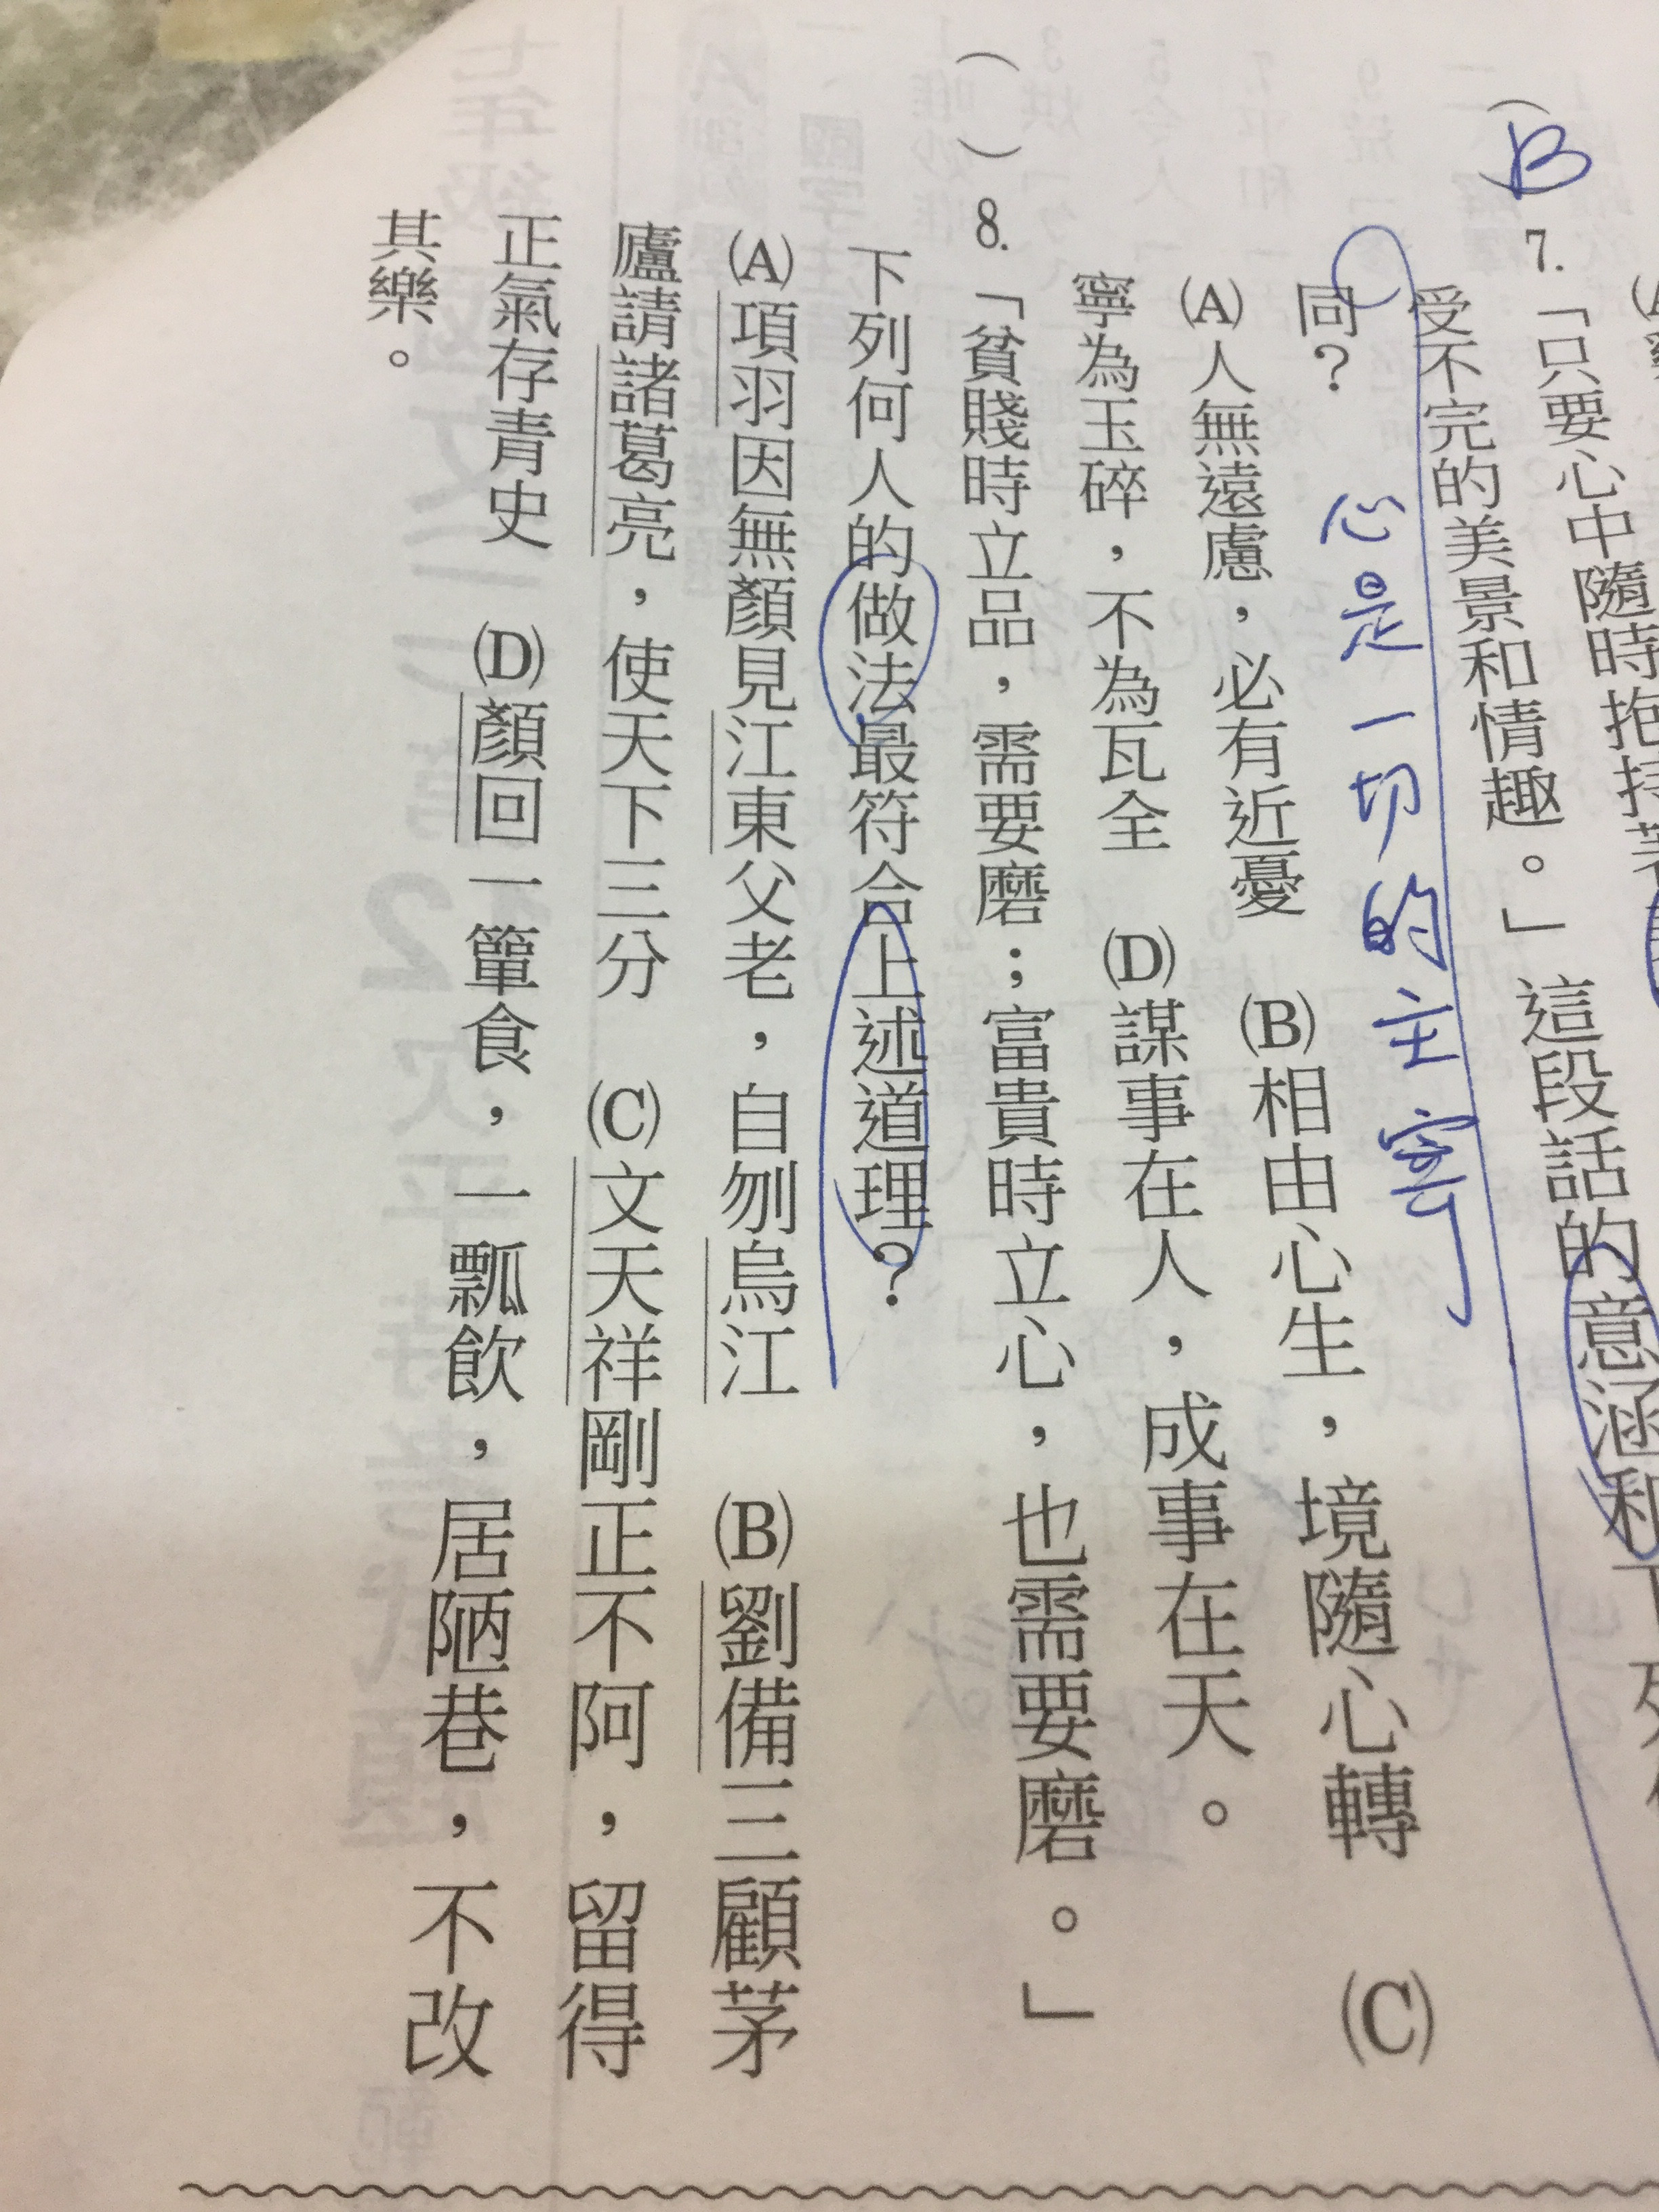 B
7.「只要心中隨時抱持著
受不完的美景和情趣。」這段話的意涵和下列
同？
心是一切的主宰
(A)人無遠慮，必有近憂　(B)相由心生，境隨心轉　(C)
寧為玉碎，不為瓦全　(D)謀事在人，成事在天。
(　)8.「貧賤時立品，需要磨；富貴時立心，也需要磨。」
下列何人的做法最符合上述道理？
(A)項羽因無顏見江東父老，自刎烏江　(B)劉備三顧茅
廬請諸葛亮，使天下三分　(C)文天祥剛正不阿，留得
正氣存青史　(D)顏回一簞食，一瓢飲，居陋巷，不改
其樂。